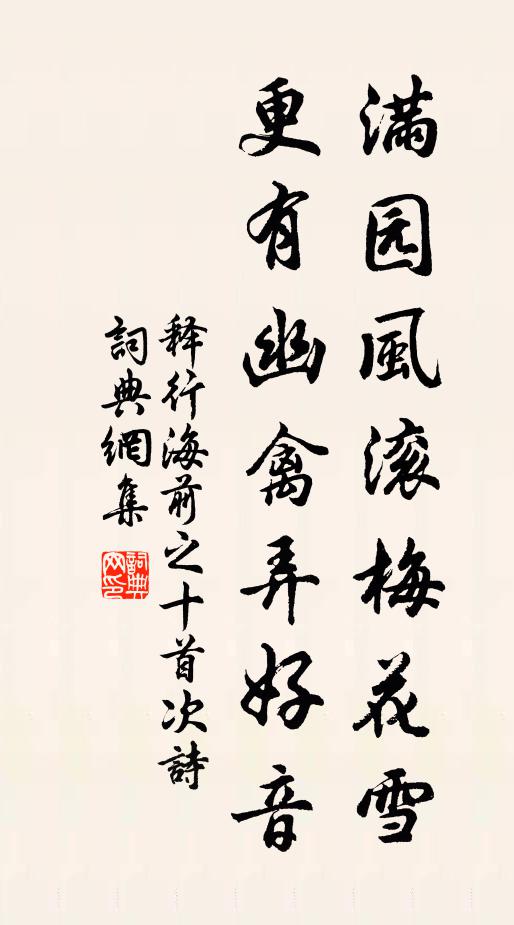 満园風滚梅花雪
更有幽禽弄好音
释行海前之十首次詩
詞典網集
詞典网印